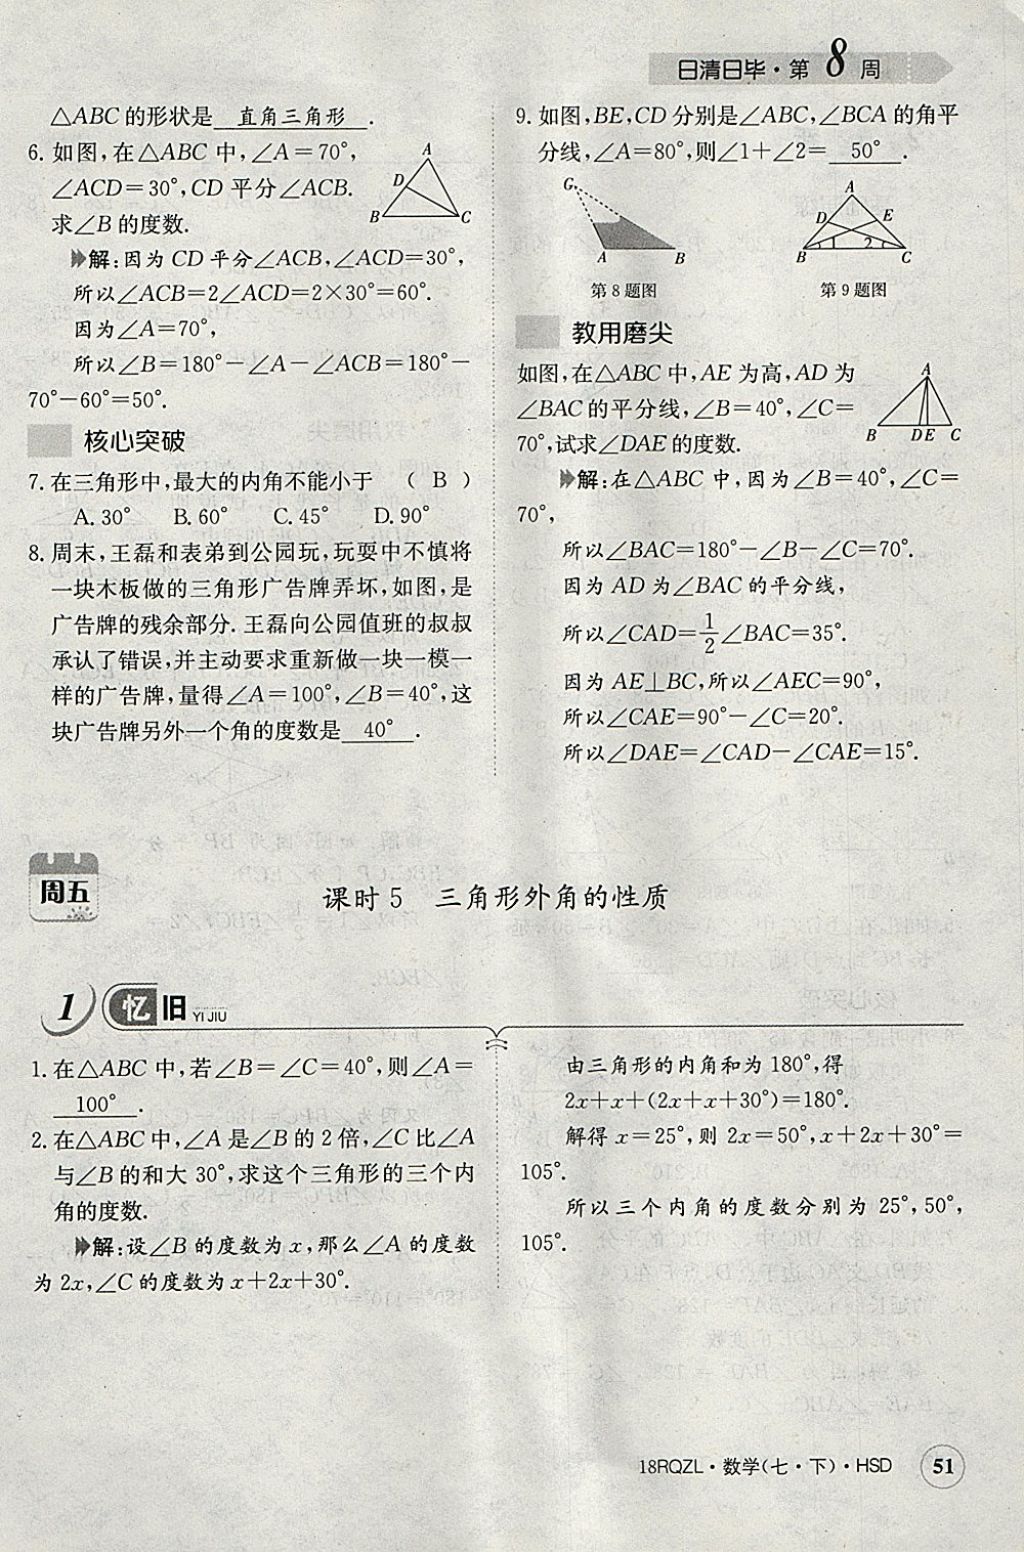 日清日毕·第8周
△ABC的形状是 直角三角形 .
6. 如图,在△ABC中,∠A=70°,
∠ACD=30°,CD平分∠ACB.
求∠B的度数.
A
D
B
C
解:因为CD平分∠ACB,∠ACD=30°,
所以∠ACB=2∠ACD=2×30°=60°.
因为∠A=70°,
所以∠B=180°-∠A-∠ACB=180°-
70°-60°=50°.
核心突破
7. 在三角形中,最大的内角不能小于 ( B )
A. 30° B. 60° C. 45° D. 90°
8. 周末,王磊和表弟到公园玩,玩耍中不慎将
一块木板做的三角形广告牌弄坏,如图,是
广告牌的残余部分. 王磊向公园值班的叔叔
承认了错误,并主动要求重新做一块一模一
样的广告牌,量得∠A=100°,∠B=40°,这
块广告牌另外一个角的度数是 40° .
9. 如图,BE,CD分别是∠ABC,∠BCA的角平
分线,∠A=80°,则∠1+∠2= 50° .
G
A
B
第8题图
A
D
E
1
2
B
C
第9题图
教用磨尖
如图,在△ABC中,AE为高,AD为
∠BAC的平分线,∠B=40°,∠C=
70°,试求∠DAE的度数.
A
B DE C
解:在△ABC中,因为∠B=40°,∠C=
70°,
所以∠BAC=180°-∠B-∠C=70°.
因为AD为∠BAC的平分线,
所以∠CAD=1/2∠BAC=35°.
因为AE⊥BC,所以∠AEC=90°,
所以∠CAE=90°-∠C=20°.
所以∠DAE=∠CAD-∠CAE=15°.
周五
课时5 三角形外角的性质
1 忆旧 YI JIU
1. 在△ABC中,若∠B=∠C=40°,则∠A=
100° .
2. 在△ABC中,∠A是∠B的2倍,∠C比∠A
与∠B的和大30°,求这个三角形的三个内
角的度数.
解:设∠B的度数为x,那么∠A的度数
为2x,∠C的度数为x+2x+30°.
由三角形的内角和为180°,得
2x+x+(2x+x+30°)=180°.
解得x=25°,则2x=50°,x+2x+30°=
105°.
所以三个内角的度数分别为25°,50°,
105°.
18RQZL·数学(七·下)·HSD 51